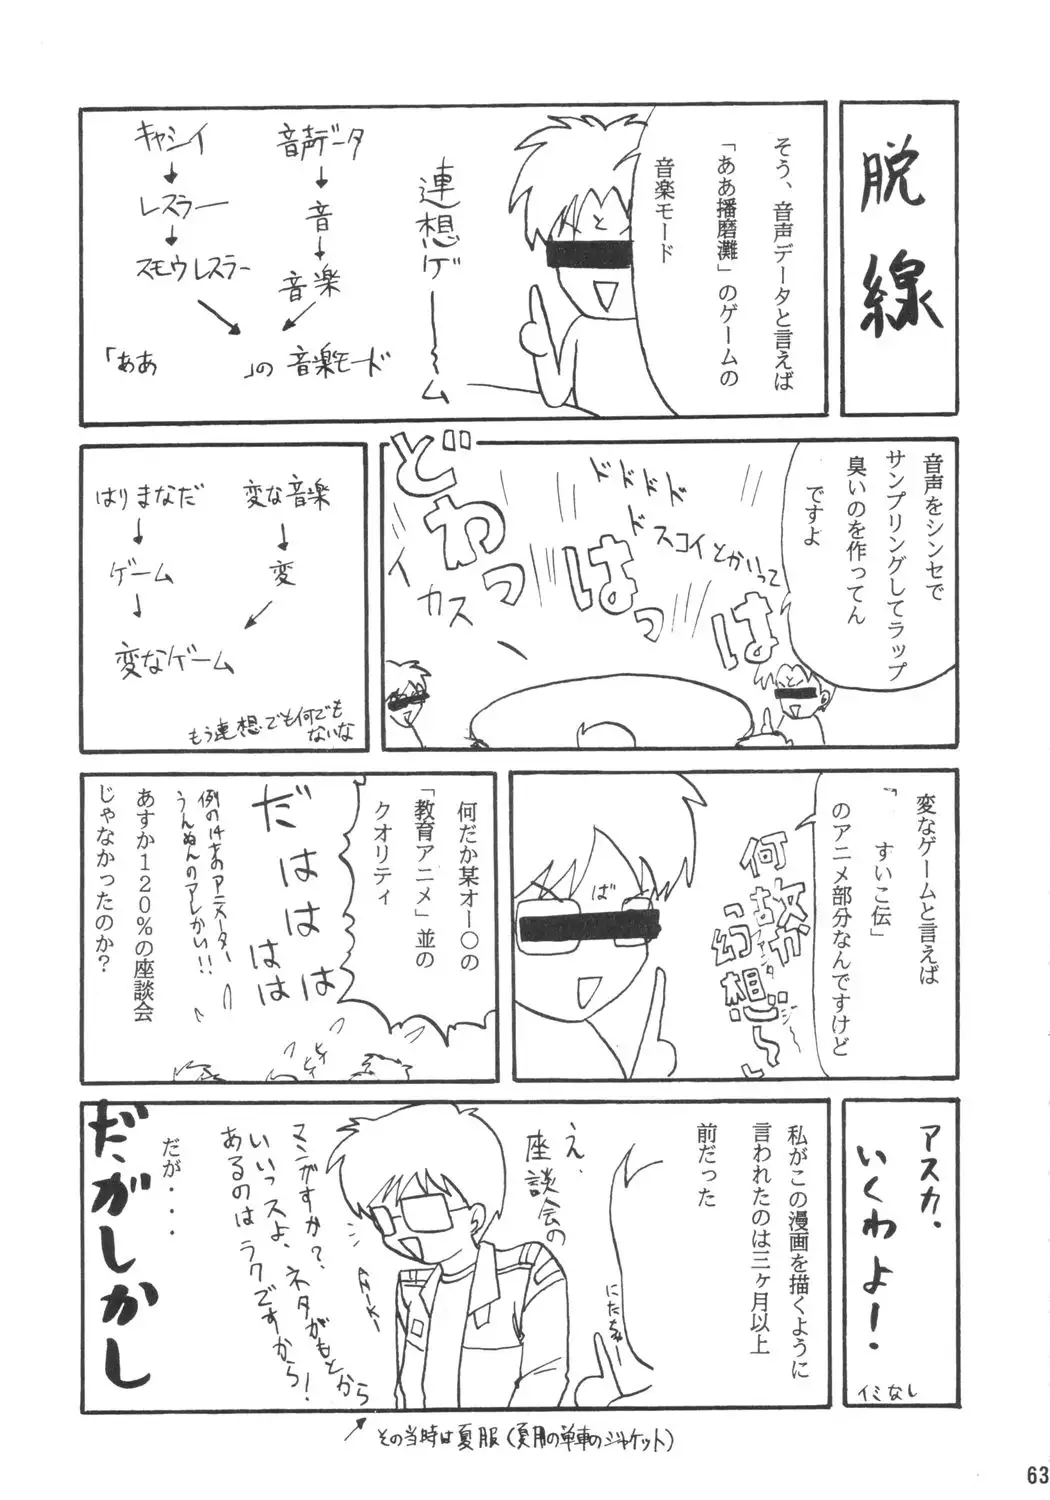 脱線
そう、音声データと言えば
「ああ播磨灘」のゲームの
音楽モード
と
連想ゲーーム
音声データ
音
音楽
キャシィ
レスラー
スモウレスラー
「ああ　　　」の音楽モード
音声をシンセで
サンプリングしてラップ
臭いのを作ってん
ですよ
ドドドド
ドスコイとかいって
と
はっはっは
どわっ
イカス
変な音楽
変
はりまなだ
ゲーム
変なゲーム
もう連想でも何でも
ないな
変なゲームと言えば
「　すいこ伝」
のアニメ部分なんですけど
何故か
幻想し
ば
何だか某オー〇の
「教育アニメ」並の
クオリティ
だははは
はは
例の14才のアニメーター
うんぬんのアレかい!!
ヒィ
ヒィ
あすか120％の座談会
じゃなかったのか？
アスカ、
いくわよー！
イミなし
私がこの漫画を描くように
言われたのは三ヶ月以上
前だった
え、
座談会の
マンガすか？
いいっスよ、ネタがもとから
あるのはラクですから！
ANIKI
だが・・・
だがしかし
その当時は夏服（夏用の単車のジャケット）
63